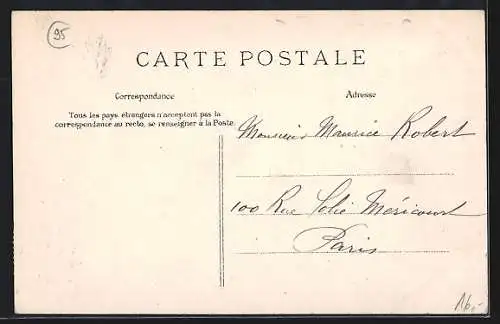 95
CARTE POSTALE
Correspondance
Adresse
Tous les pays étrangers n'acceptent pas la
correspondance au recto, se renseigner à la Poste.
Monsieur Maurice Robert
100 Rue Folie Méricourt
Paris